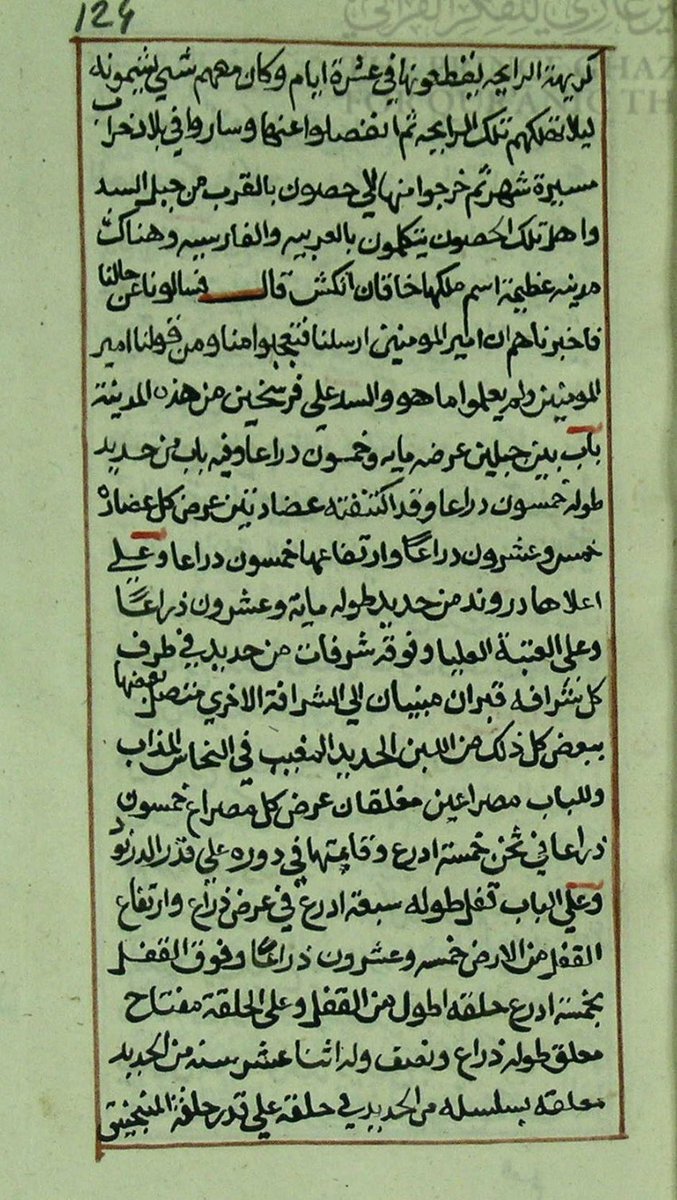 124
كريهة الرايحه يقطعونها في عشرة ايام وكان معهم شي يشمونه
ليلا تهلكهم تلك الرايحه ثم انفصلوا عنها وساروا في بلاد خراب
مسيرة شهر ثم خرجوا منها الي حصون بالقرب من جبل السد
واهل تلك الحصون يتكلمون بالعربيه والفارسيه وهناك
مدينه عظيمة اسم ملكها خاقان انكش قال فسالونا عن حالنا
فاخبرناهم ان امير المومنين ارسلنا فتعجبوا منا ومن قولنا امير
المومنين ولم يعلموا ما هو والسد علي فرسخين من هذه المدينة
باب بين جبلين عرضه مايه وخمسون دراعا وفيه باب من حديد
طوله خمسون دراعا وقد اكتنفته عضادتين عرض كل عضاده
خمس وعشرون دراعا وارتفاعها خمسون دراعا وعلي
اعلاها دروند من حديد طوله ماية وعشرون ذراعا
وعلي العتبة العليا وفوقه شرفات من حديد في طرف
كل شرافه قبران مبنيان الي الشرافة الاخري متصل بعضها
ببعض كل ذلك من اللبن الحديد المغيب في النحاس المذاب
وللباب مصراعين مغلقان عرض كل مصراع خمسون
ذراعا في ثخن خمسة ادرع وقايمتها في دوره علي قدر الدرنود
وعلي الباب قفل طوله سبعة ادرع في عرض ذراع وارتفاع
القفل من الارض خمسه وعشرون ذراعا وفوق القفل
بخمسة ادرع حلقه اطول من القفل وعلي الحلقة مفتاح
معلق طوله ذراع ونصف وله اثنا عشر سنه من الحديد
معلقه بسلسله من الحديد في حلقة علي قدر حلقة المنجنيق